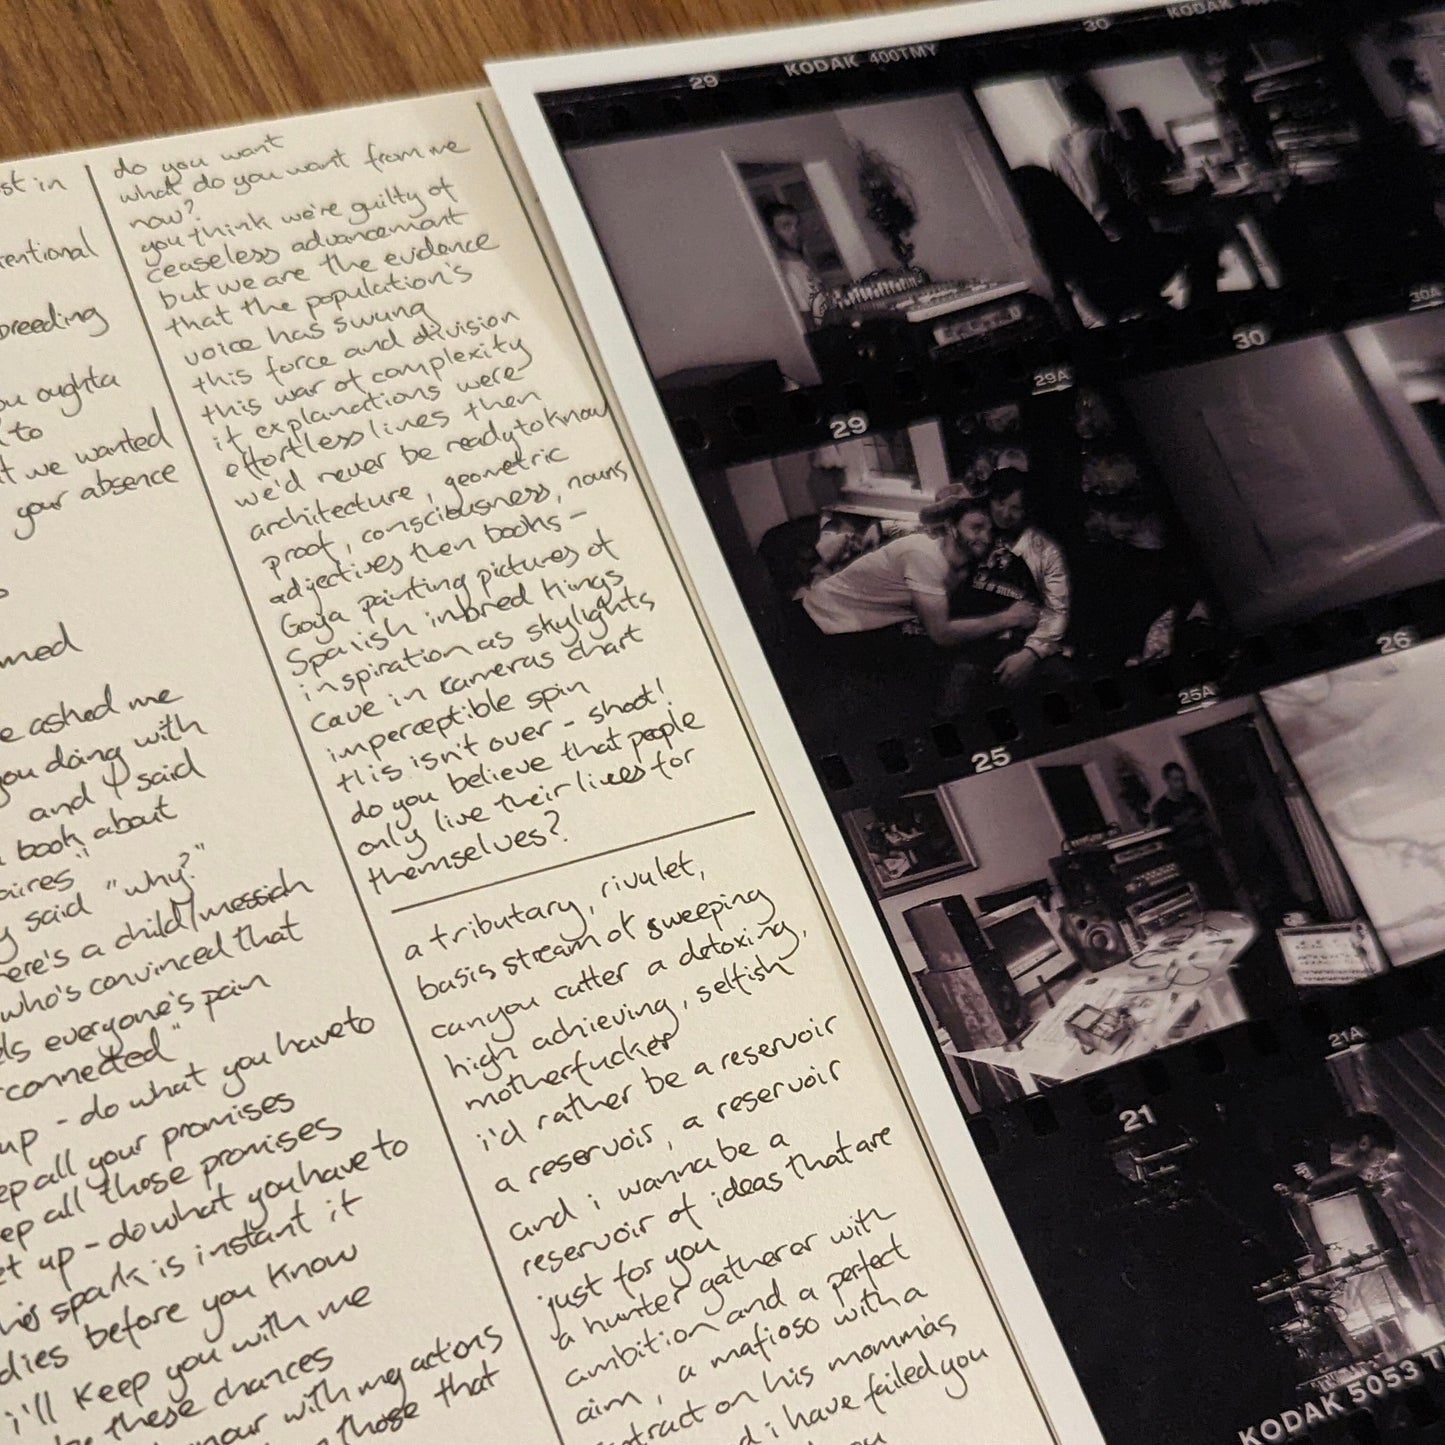 st in
rentional
breeding
ou oughta
to
t we wanted
your absence
med
e ashed me
you doing with
and I said
book about
aires"
y said "why?"
here's a child/messiah
who's convinced that
ls everyone's pain
connected"
up - do what you have to
ep all your promises
eep all those promises
et up - do what you have to
his spark is instant it
dies before you know
i'll keep you with me
these chances
honour with my actions
those that
do you want
what do you want from me
now?
you think we're guilty of
ceaseless advancement
but we are the evidence
that the population's
voice has swung
this force and division
this war of complexity
if explanations were
effortless lines then
we'd never be ready to know
architecture, geometric
proof, consciousness, nouns,
adjectives then books -
Goya painting pictures of
Spanish inbred kings
inspiration as skylights
cave in cameras chart
imperceptible spin
this isn't over - shoot!
do you believe that people
only live their lives for
themselves?
a tributary, rivulet,
basis stream of sweeping
can you cutter a detoxing,
high achieving, selfish
motherfucker
i'd rather be a reservoir
a reservoir, a reservoir
and i wanna be a
reservoir of ideas that are
just for you
a hunter gatherer with
ambition and a perfect
aim, a mafioso with a
ntract on his momma's
d i have failed you
29 KODAK 400TMY 30 KODAK
29 29A 30 30A
25 25A 26
21 21A
KODAK 5053 T